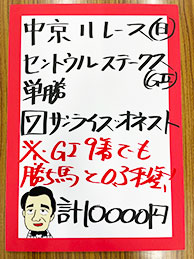 中京11レース(日)
セントウルステークス
(GⅡ)
単勝
7サンライズオネスト
※GⅠ9着でも
勝ち馬と0.3秒差!
計10000円